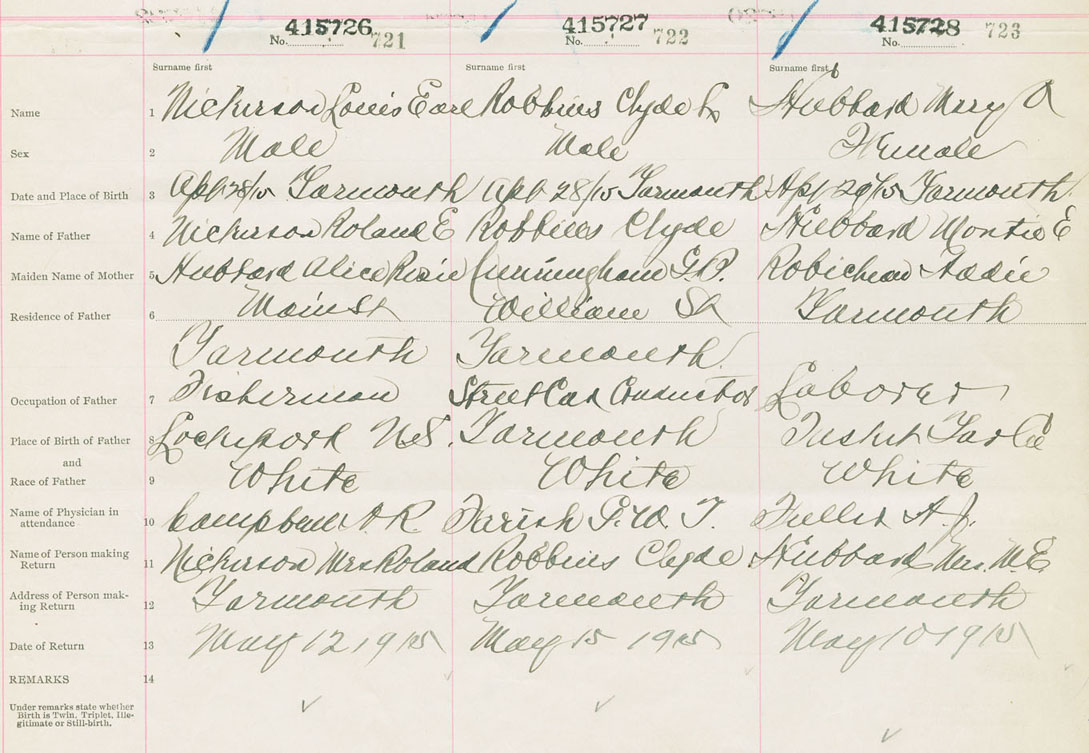 415726 415727 415728
No. 721 No. 722 No. 723
Surname first Surname first Surname first
Name 1 Nickerson Louis Earl Robbins Clyde Hubbard Mary A
Sex 2 Male Male Female
Date and Place of Birth 3 Apl 28/15 Yarmouth Apl 28/15 Yarmouth Apl 29/15 Yarmouth
Name of Father 4 Nickerson Roland E Robbins Clyde Hubbard Montie E
Maiden Name of Mother 5 Hubbard Alice Rosie Cunningham Robicheau Addie
Main St William St Yarmouth
Residence of Father 6
Yarmouth Yarmouth
Occupation of Father 7 Fisherman Street Car Conductor Laborer
Place of Birth of Father 8 Lockeport N.S. Yarmouth Tusket Yar Co
and
Race of Father 9 White White White
Name of Physician in
attendance 10 Campbell A R Farish G. W. T. Fuller A. J.
Name of Person making
Return 11 Nickerson Mrs Roland Robbins Clyde Hubbard Mrs. M. E.
Address of Person mak-
ing Return 12 Yarmouth Yarmouth Yarmouth
Date of Return 13 May 12 1915 May 15 1915 May 10 1915
REMARKS 14
Under remarks state whether
Birth is Twin, Triplet, Ille-
gitimate or Still-birth.